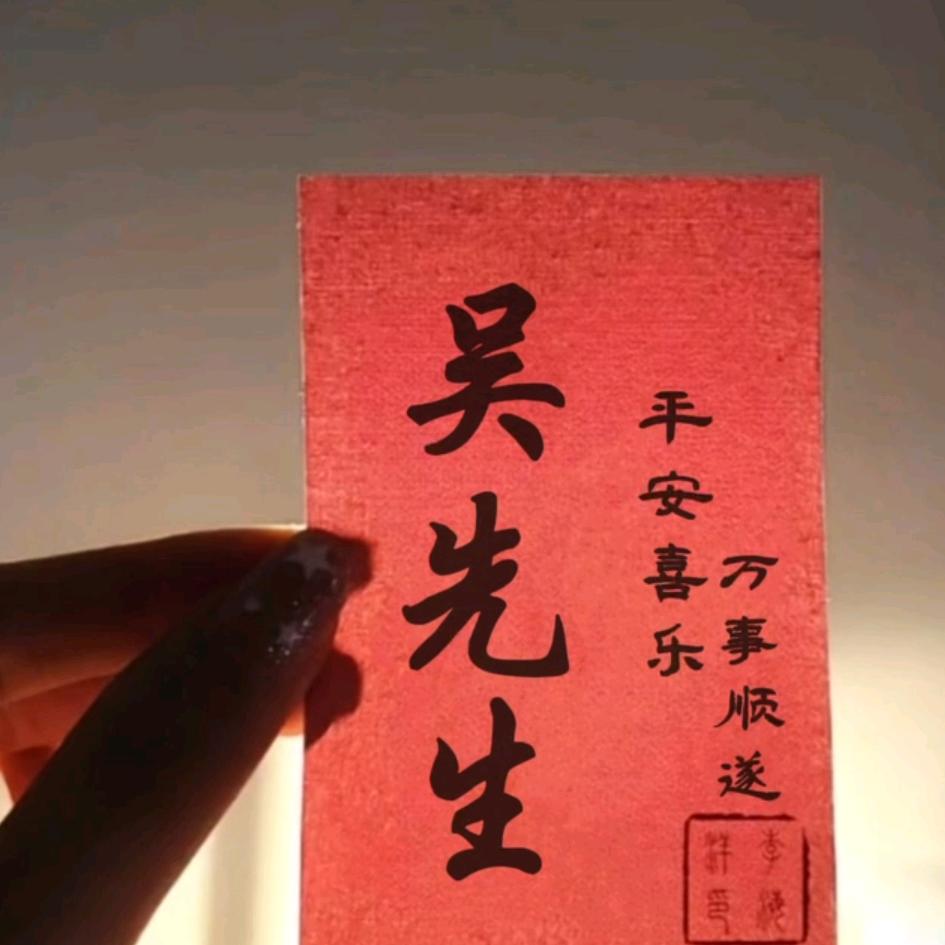 吴先生
平安喜乐
万事顺遂